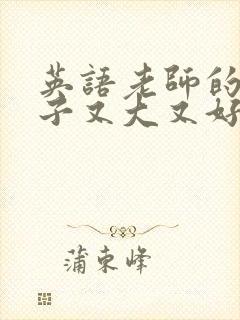 英語老師的
子又大又好
蒲東峰